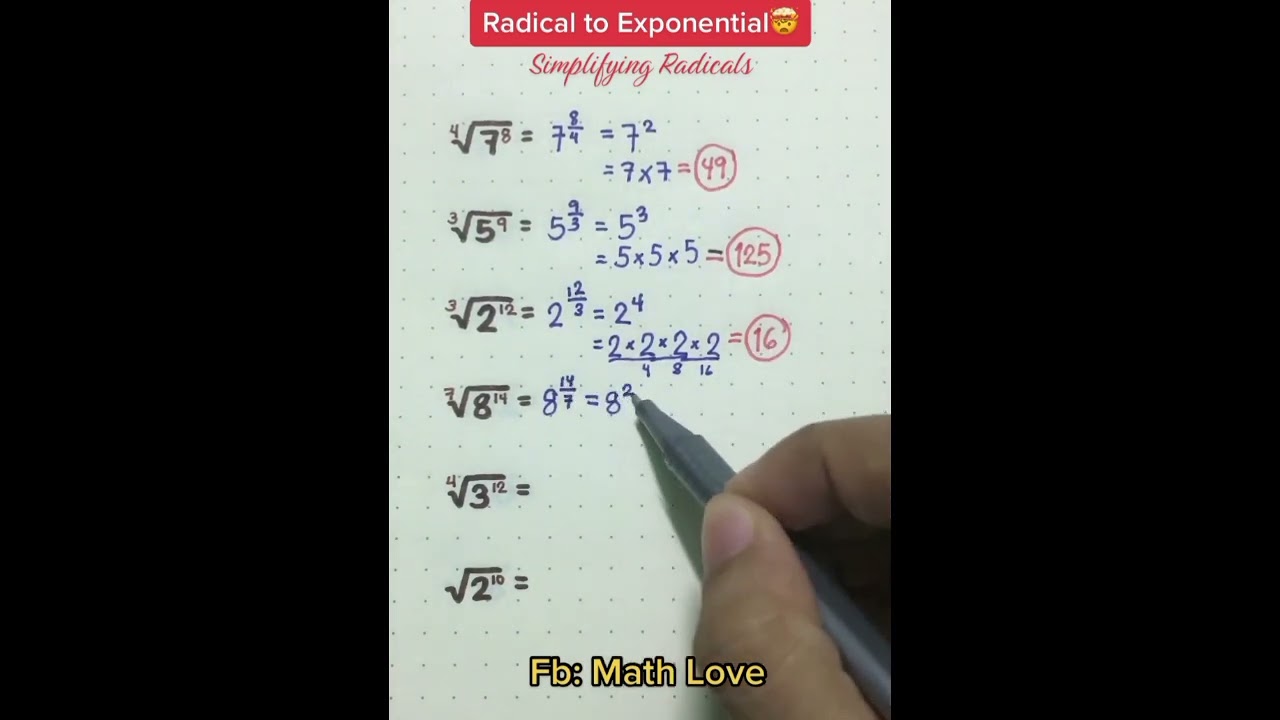 Radical to Exponential🤯
Simplifying Radicals
⁴√7⁸ = 7^(8/4) = 7²
= 7 × 7 = 49
³√5⁹ = 5^(9/3) = 5³
= 5 × 5 × 5 = 125
³√2¹² = 2^(12/3) = 2⁴
= 2 × 2 × 2 × 2 = 16
4 8 16
⁷√8¹⁴ = 8^(14/7) = 8²
⁴√3¹² =
√2¹⁰ =
Fb: Math Love